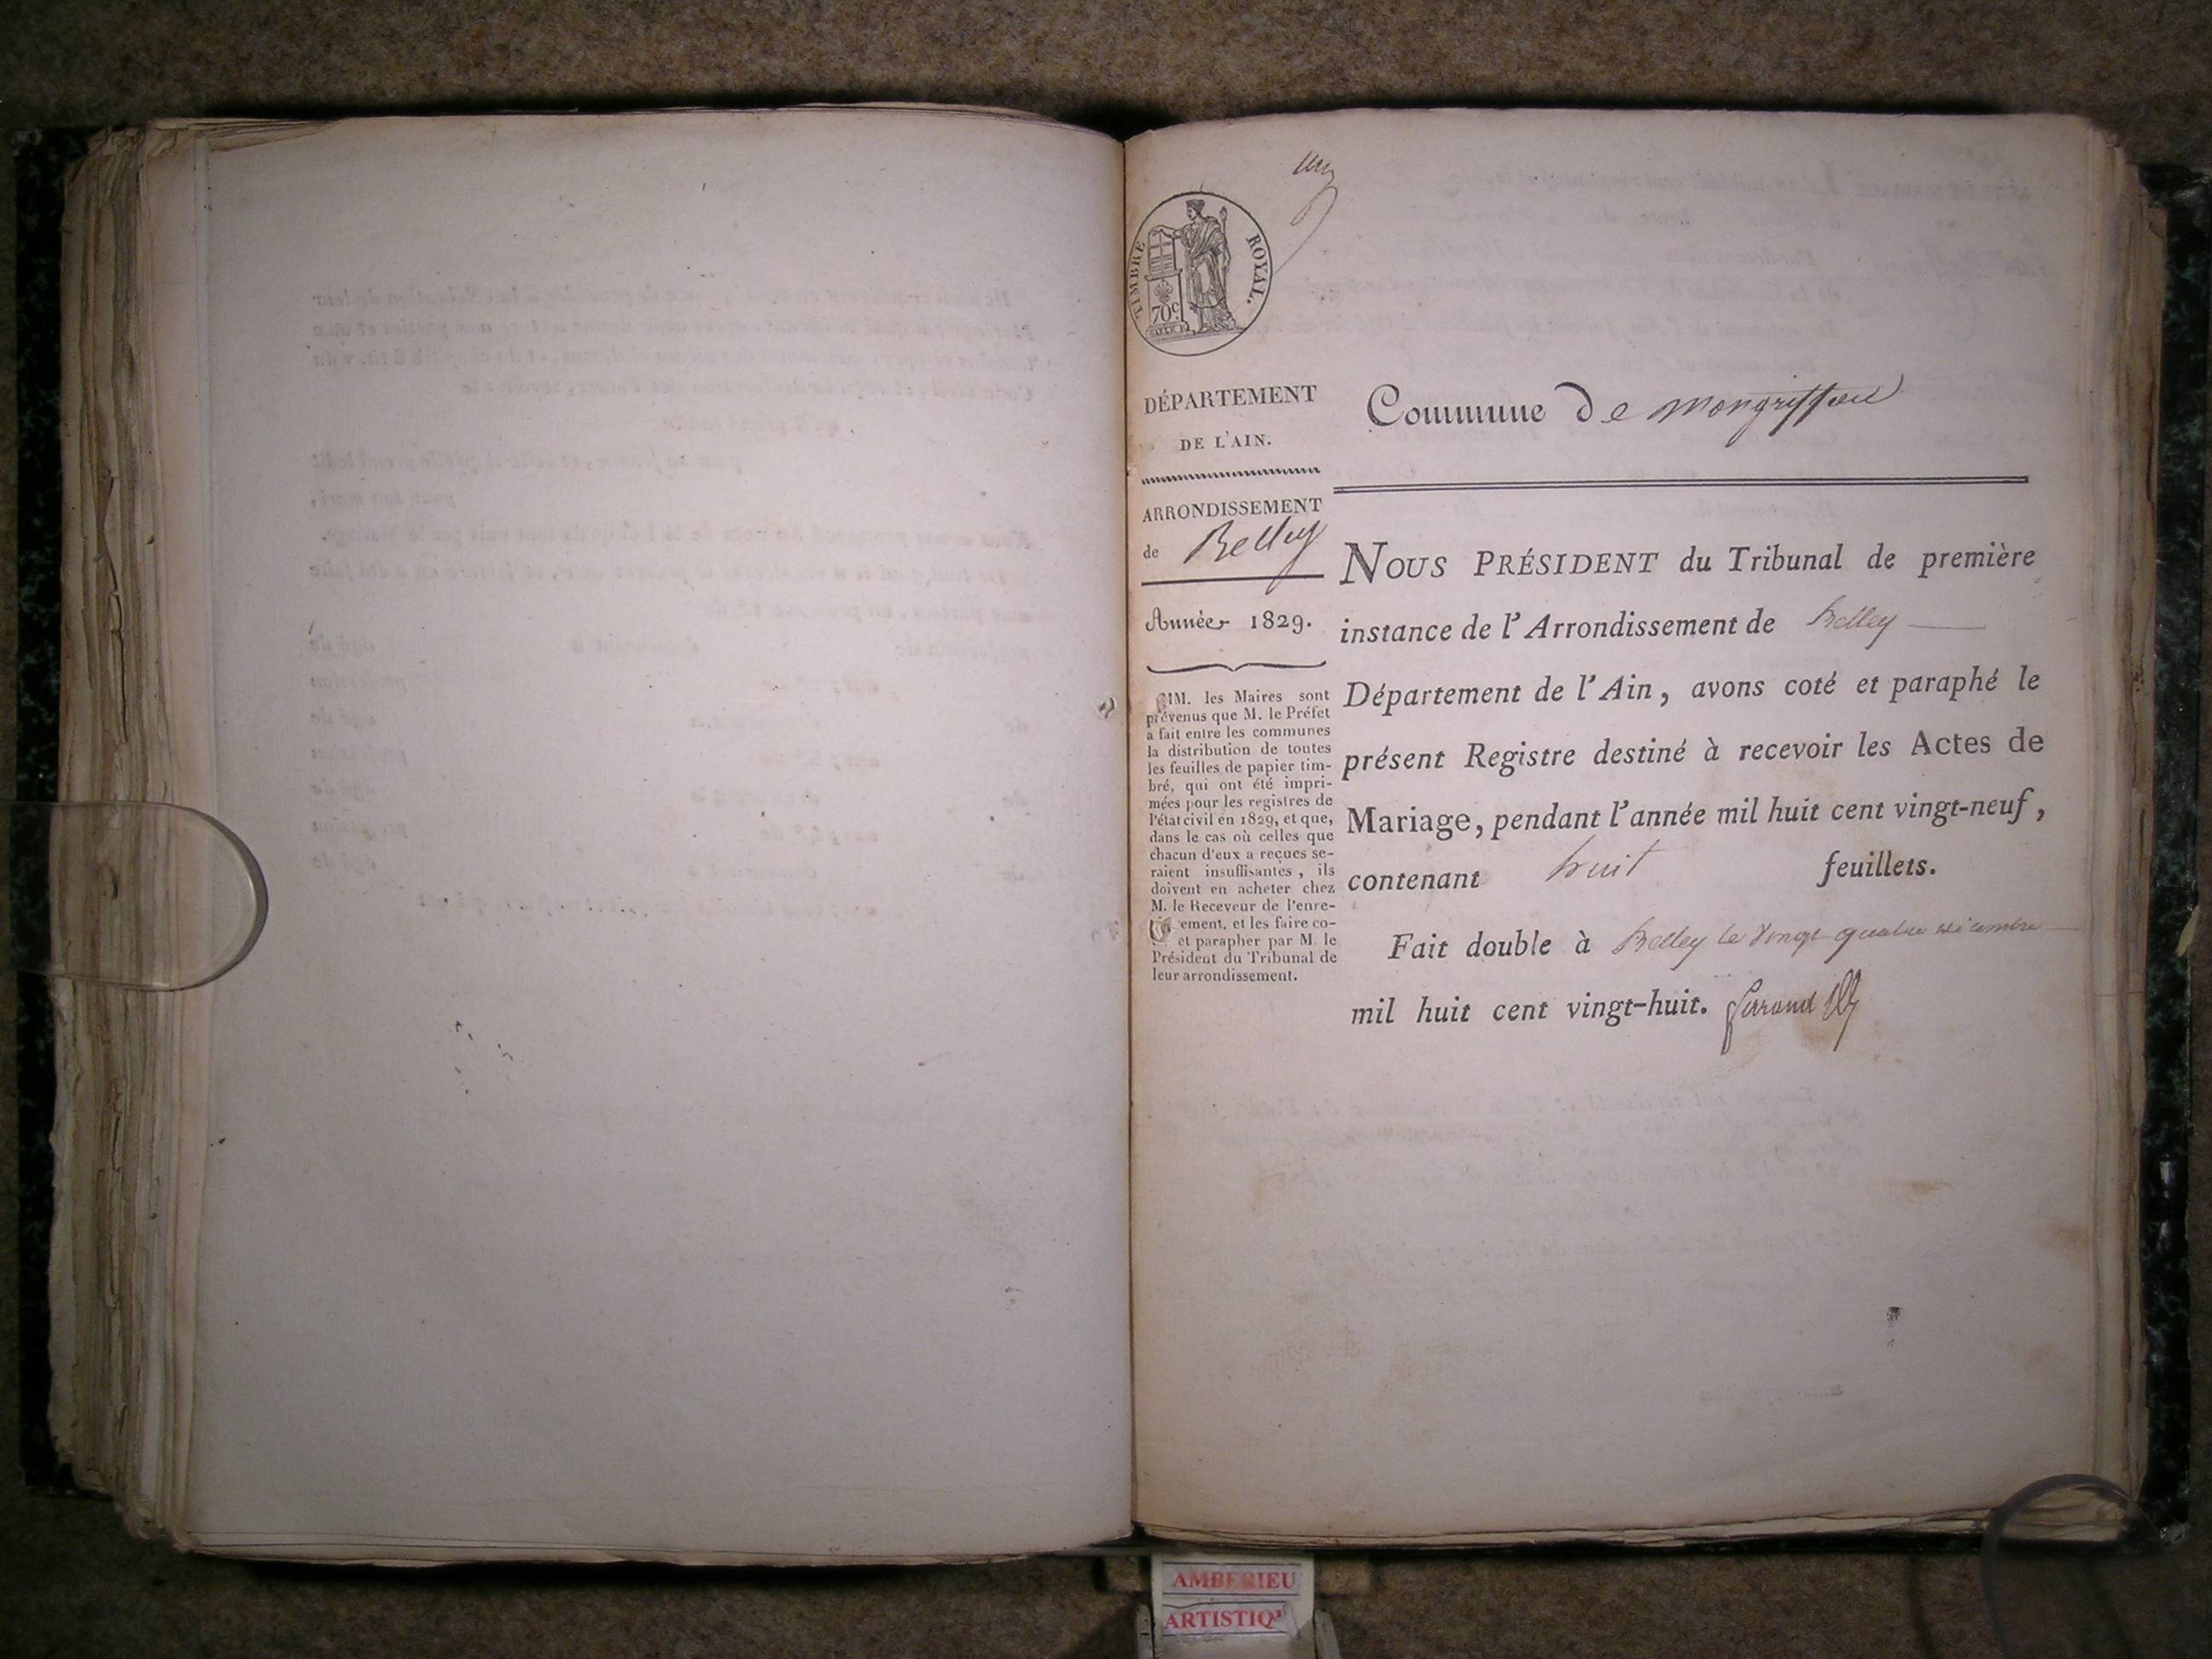 un
TIMBRE ROYAL.
70c
DÉPARTEMENT
DE L'AIN.
ARRONDISSEMENT
de Belley
Année 1829.
MM. les Maires sont
prévenus que M. le Préfet
a fait entre les communes
la distribution de toutes
les feuilles de papier tim-
bré, qui ont été impri-
mées pour les registres de
l'état civil en 1829, et que,
dans le cas où celles que
chacun d'eux a reçues se-
raient insuffisantes, ils
doivent en acheter chez
M. le Receveur de l'enre-
ement, et les faire co-
et parapher par M. le
Président du Tribunal de
leur arrondissement.
Commune De mongriffon
NOUS PRÉSIDENT du Tribunal de première
instance de l'Arrondissement de Belley
Département de l'Ain, avons coté et paraphé le
présent Registre destiné à recevoir les Actes de
Mariage, pendant l'année mil huit cent vingt-neuf,
contenant huit feuillets.
Fait double à Belley le vingt quatre décembre
mil huit cent vingt-huit.
AMBERIEU
ARTISTIQ